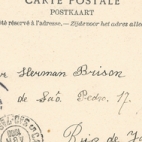 CARTE POSTALE
POSTKAART
té réservé à l'adresse. — Zijde voor het adres alleen
Herman Brison
de Saô Pedro, 17.
Rio de